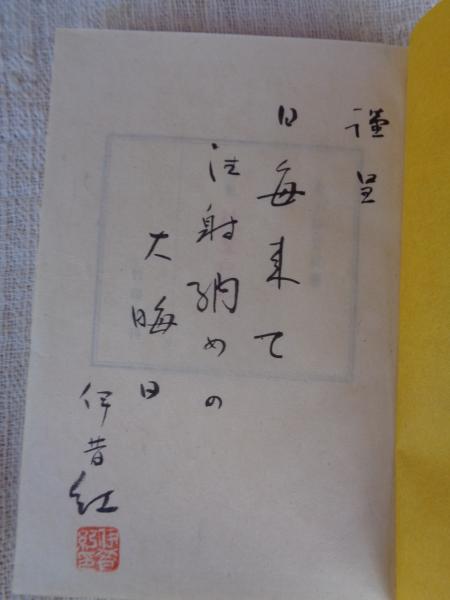 謹呈
日毎来て
注射納めの
大晦日
伊昔紅